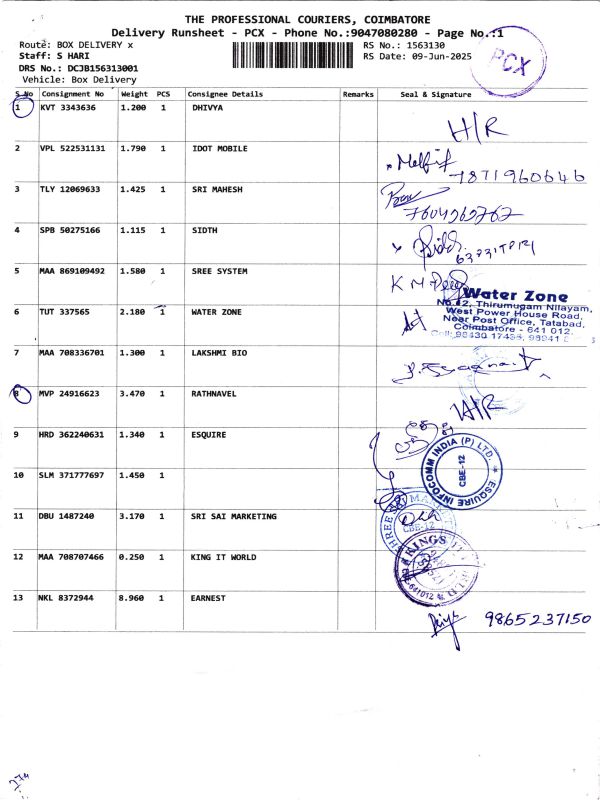 THE PROFESSIONAL COURIERS, COIMBATORE
Delivery Runsheet - PCX - Phone No.:9047080280 - Page No.:1
Route: BOX DELIVERY x
Staff: S HARI
DRS No.: DCJB156313001
Vehicle: Box Delivery
RS No.: 1563130
RS Date: 09-Jun-2025
PCX
S No Consignment No Weight PCS Consignee Details Remarks Seal & Signature
1 KVT 3343636 1.200 1 DHIVYA
H/R
2 VPL 522531131 1.790 1 IDOT MOBILE
7871960646
3 TLY 12069633 1.425 1 SRI MAHESH
4 SPB 50275166 1.115 1 SIDTH
5 MAA 869109492 1.580 1 SREE SYSTEM
6 TUT 337565 2.180 1 WATER ZONE
Water Zone
No.12, Thirumugam Nilayam,
West Power House Road,
Near Post Office, Tatabad,
Coimbatore - 641 012.
7 MAA 708336701 1.300 1 LAKSHMI BIO
8 MVP 24916623 3.470 1 RATHNAVEL
H/R
9 HRD 362240631 1.340 1 ESQUIRE
ESQUIRE INFOCOMM INDIA (P) LTD.
CBE-12
10 SLM 371777697 1.450 1
11 DBU 1487240 3.170 1 SRI SAI MARKETING
CBE-12
12 MAA 708707466 0.250 1 KING IT WORLD
13 NKL 8372944 8.960 1 EARNEST
9865237150